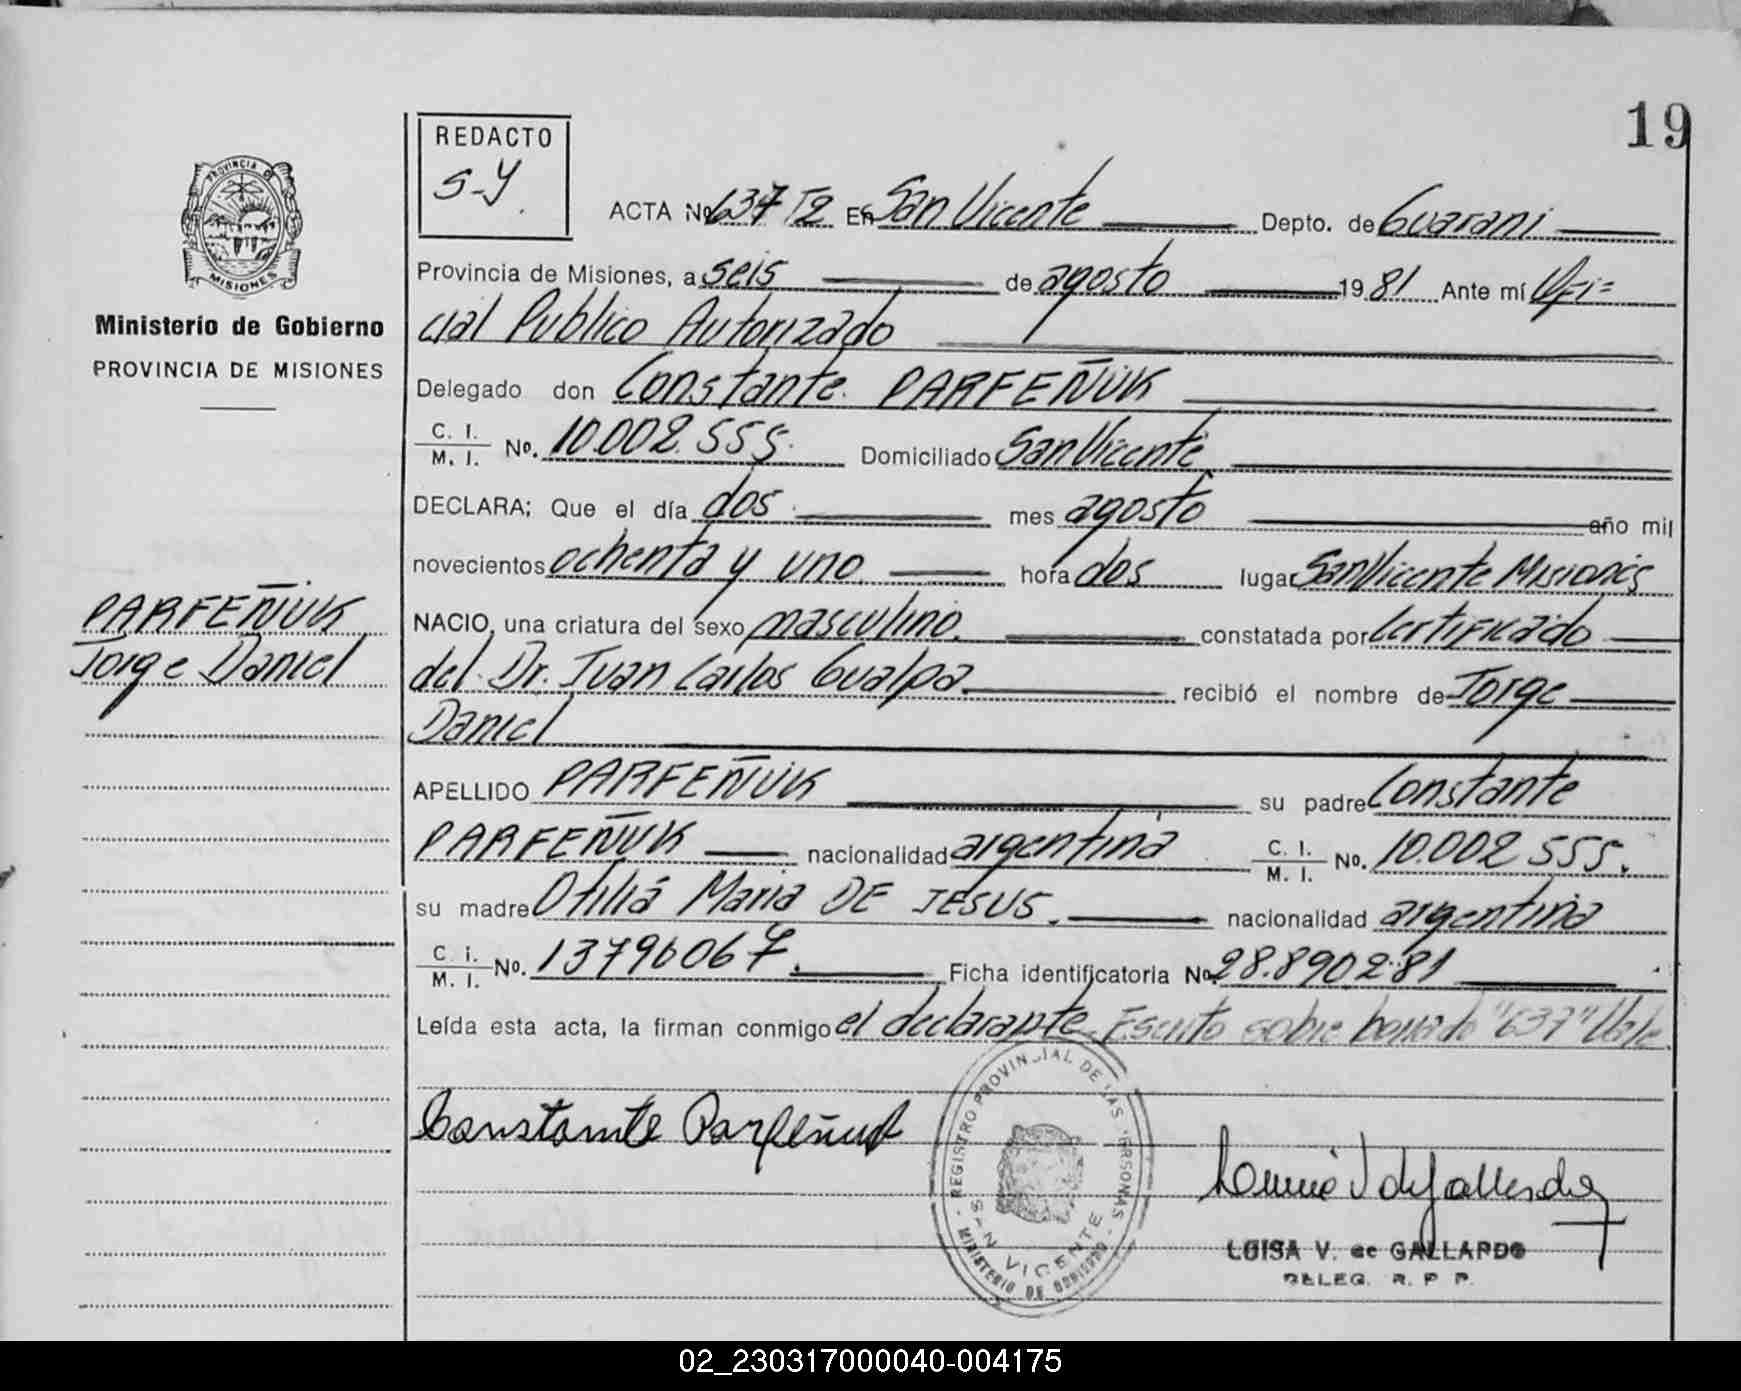 19
REDACTO
S-Y.
PROVINCIA DE
MISIONES
Ministerio de Gobierno
PROVINCIA DE MISIONES
ACTA Nº 637 T2 En San Vicente Depto. de Guarani
Provincia de Misiones, a seis de agosto 1981 Ante mí Ofi=
cial Publico Autorizado
Delegado don Constante PARFEÑUK
C. I. / M. I. No. 10.002.555. Domiciliado San Vicente
DECLARA; Que el día dos mes agosto año mil
novecientos ochenta y uno hora dos lugar San Vicente Misiones
PARFEÑUK
Jorge Daniel
NACIO, una criatura del sexo masculino. constatada por certificado
del Dr. Juan Carlos Gualpa recibió el nombre de Jorge
Daniel
APELLIDO PARFEÑUK su padre Constante
PARFEÑUK nacionalidad argentina C. I. / M. I. No. 10.002.555.
su madre Otilia Maria DE JESUS. nacionalidad argentina
C. i. / M. I. No. 13796067. Ficha identificatoria No. 28.890281
Leída esta acta, la firman conmigo el declarante. Escrito sobre borrado "637" Vale.
REGISTRO PROVINCIAL DE LAS PERSONAS
SAN VICENTE
MINISTERIO DE GOBIERNO
Constante Parfeñuk
Luisa V de Gallardo
LUISA V. de GALLARDO
DELEG. R. P. P.
02_230317000040-004175